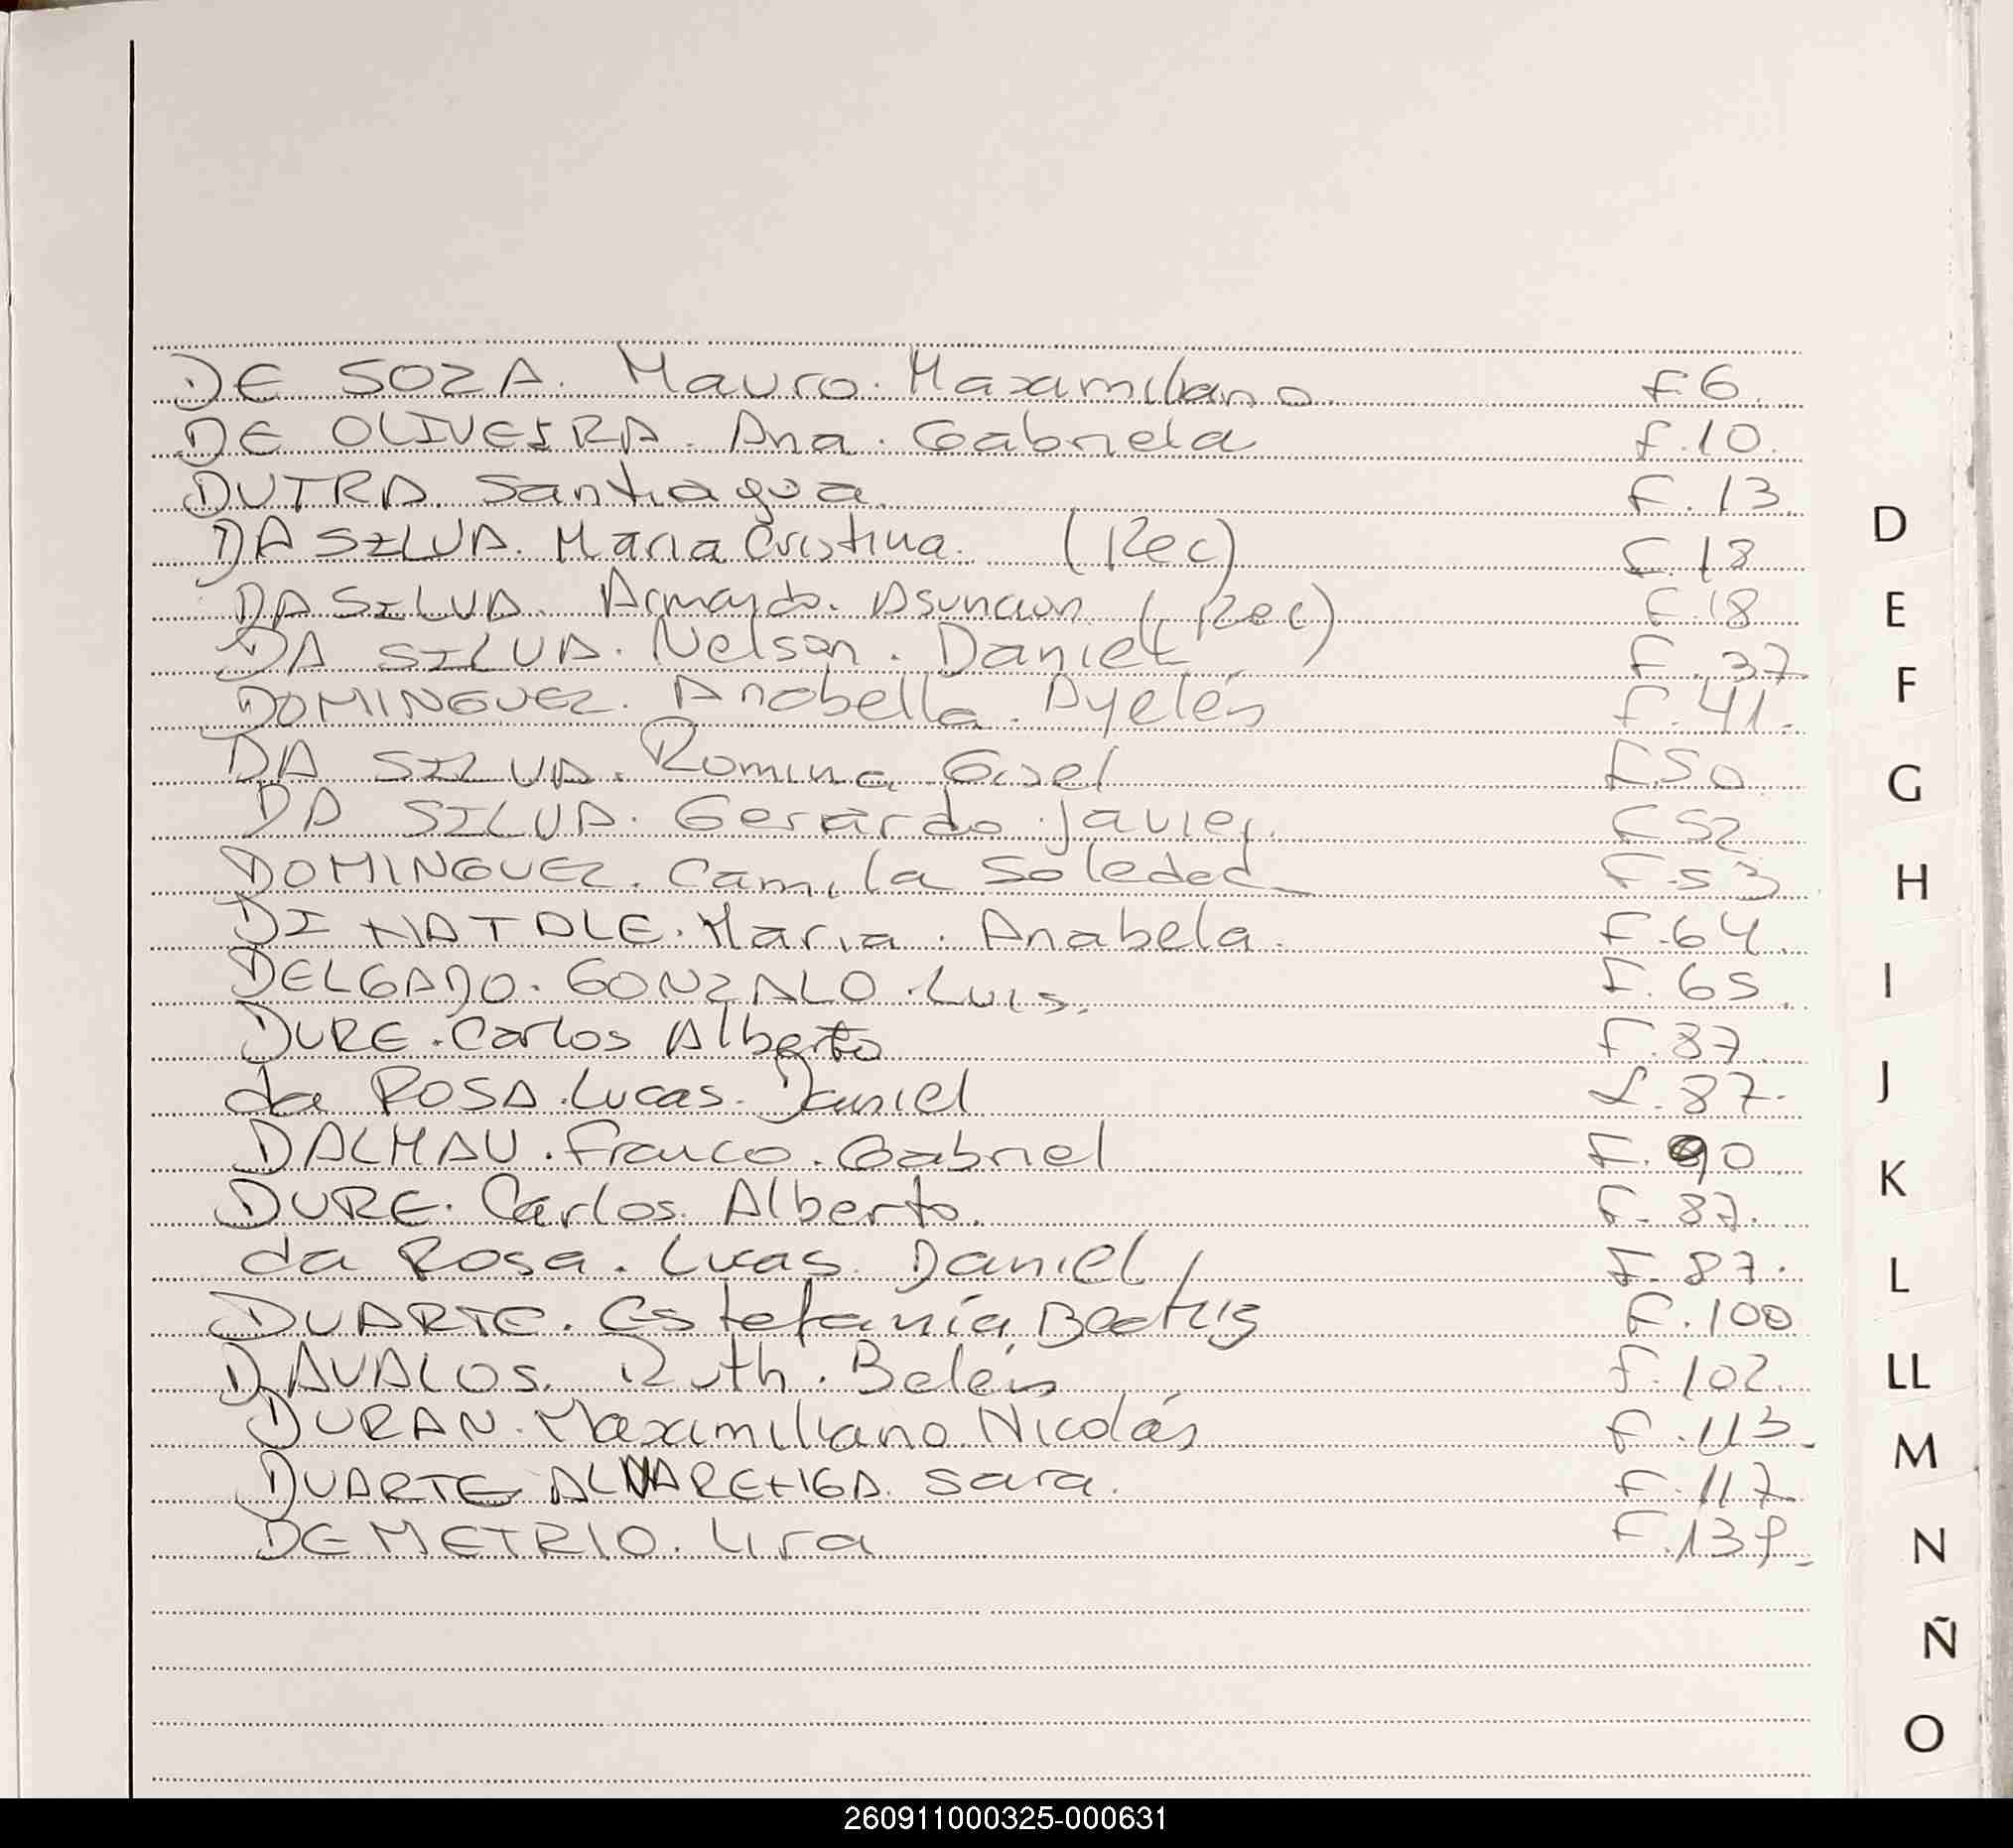 DE SOZA. Mauro. Maximiliano. F6.
DE OLIVEIRA. Ana. Gabriela F.10.
DUTRA. Santiagoa. F.13.
DA SILVA. Maria Cristina. (Rec) F.18
DA SILVA. Armando. Asuncion (Rec) F.18
DA SILVA. Nelson. Daniel F.37
DOMINGUEZ. Anabella. Ayelén F.41.
DA SILVA. Romina Gisel F50
DA SILVA. Gerardo Javier. F52
DOMINGUEZ. Camila Soledad F.53
DI NATALE. Maria. Anabela. F.64.
DELGADO. GONZALO. Luis. F.65.
DURE. Carlos Alberto F.87.
da ROSA. Lucas. Daniel F.87.
DALMAU. Franco. Gabriel F.90
DURE. Carlos. Alberto. F.87.
da Rosa. Lucas Daniel F.87.
DUARTE. Estefanía Beatriz F.100
DAVALOS. Ruth. Belén F.102.
DURAN. Maximiliano Nicolás F.113.
DUARTE Sara. F.117
DEMETRIO. F.139.
D
E
F
G
H
I
J
K
L
LL
M
N
Ñ
O
260911000325-000631